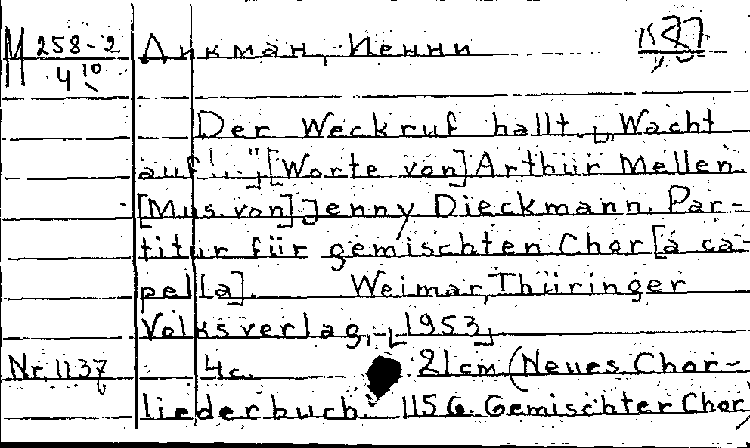 М 258-2 Дикман, Иенни
4 10
Der Weckruf hallt. „Wacht
auf!.."; [Worte von] Arthur Mellen.
[Mus. von] Jenny Dieckmann. Par-
titur für gemischten Chor [a ca-
pella]. Weimar, Thüringer
Volksverlag, [1953]
Nr. 1137 4 с. 21 cm (Neues Chor-
liederbuch. 115 G. Gemischter Chor)